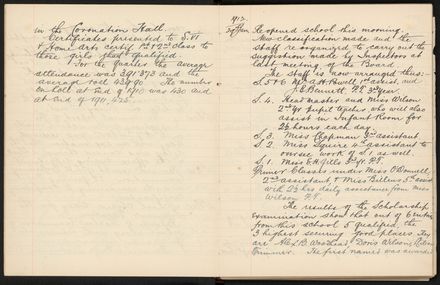 in the Coronation Hall.
Certificates presented to S. VI
& Home Arts certif. 1st & 2nd class to
those girls that qualified
For the quarter the average
attendance was 391.373 and the
average roll 439.90. The number
on roll at end of 1910 was 430 and
at end of 1911, 425.
1912.
29th Jan Re-opened school this morning.
New classification made and the
staff re-organized to carry out the
suggestion made by Inspectors at
last meeting of the Board.
The staff is now arranged thus:-
S. 5 & 6. Mr A. H. 1st assist. and
J. E. Bennett, P.T. 3rd year.
S. 4. Head master and Miss Wilson
2nd yr. pupil teacher, who will also
assist in Infant Room for
2½ hours each day.
S. 3. Miss Chapman 3rd assistant
S. 2. Miss Squire 4th assistant to
oversee work of S. 1 as well.
S. 1. Miss E. H. Gills 3rd yr. P.T.
Primer Classes under Miss O'Donnell
2nd assistant & Miss Bellens 5th assist
with 2½ hrs daily assistance from Miss
Wilson P.T.
The results of the Scholarship
examination show that out of 6 entries
from this school 5 qualified, the
3 highest securing good places. They
are A. E. L. B. Woodhead, Doris Wilson,
Trimmer. The first named was awarded